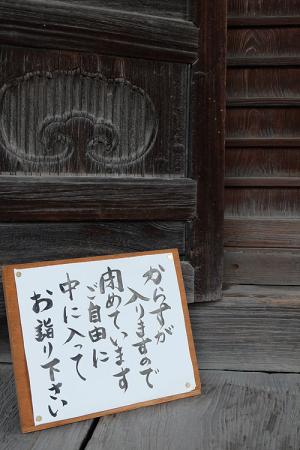 からすが
入りますので
閉めています
ご自由に
中に入って
お詣り下さい